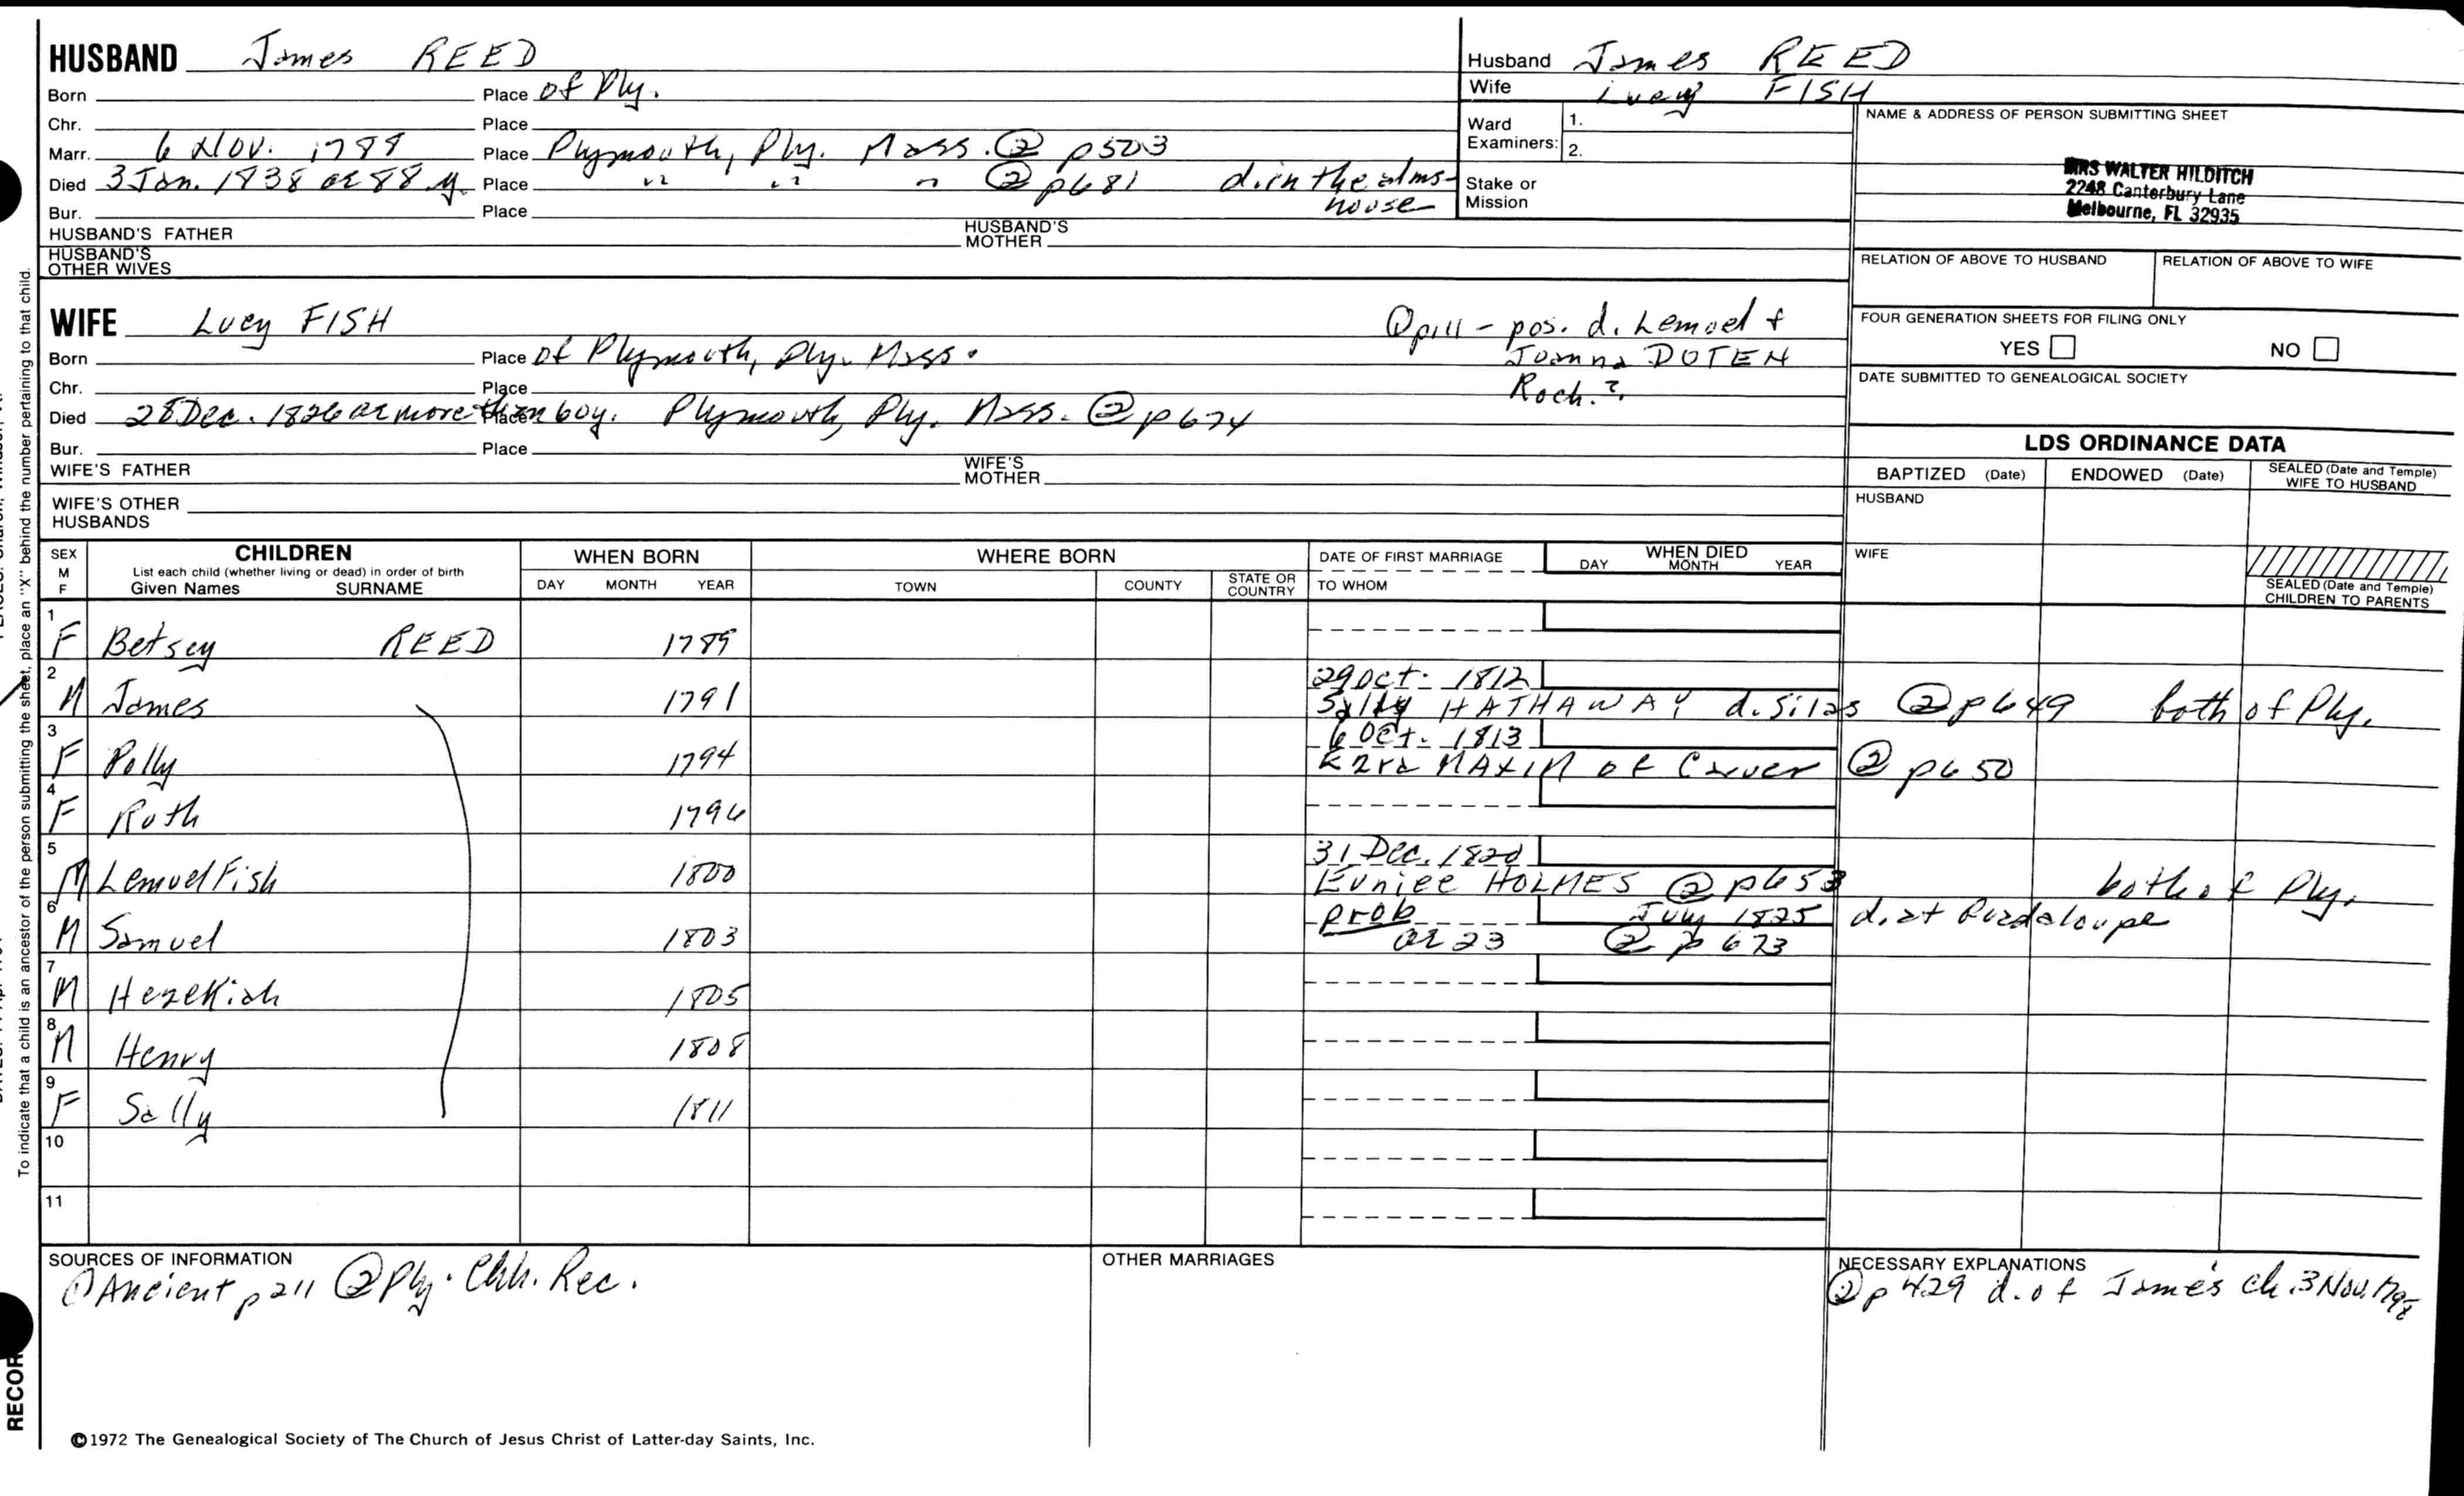 HUSBAND James REED
Husband James REED
Wife Lucy FISH
Born Place of Ply.
Chr. Place
Marr. 6 Nov. 1788 Place Plymouth, Ply. Mass. ② p503
Died 3 Jan. 1838 ae 88 y. Place " " " ② p681 d. in the alms-
house
Bur. Place
HUSBAND'S FATHER HUSBAND'S MOTHER
HUSBAND'S OTHER WIVES
Ward 1.
Examiners: 2.
Stake or
Mission
NAME & ADDRESS OF PERSON SUBMITTING SHEET
MRS WALTER HILDITCH
2248 Canterbury Lane
Melbourne, FL 32935
RELATION OF ABOVE TO HUSBAND RELATION OF ABOVE TO WIFE
FOUR GENERATION SHEETS FOR FILING ONLY
YES NO
DATE SUBMITTED TO GENEALOGICAL SOCIETY
WIFE Lucy FISH
① p111 - pos. d. Lemuel &
Joanna DOTEN
Roch.?
Born Place of Plymouth, Ply. Mass.
Chr. Place
Died 28 Dec. 1826 ae more than 60 y. Place Plymouth, Ply. Mass. ② p674
Bur. Place
WIFE'S FATHER WIFE'S MOTHER
WIFE'S OTHER HUSBANDS
LDS ORDINANCE DATA
BAPTIZED (Date) ENDOWED (Date) SEALED (Date and Temple) WIFE TO HUSBAND
HUSBAND
WIFE
SEALED (Date and Temple)
CHILDREN TO PARENTS
SEX M F CHILDREN WHEN BORN WHERE BORN DATE OF FIRST MARRIAGE WHEN DIED
List each child (whether living or dead) in order of birth DAY MONTH YEAR
Given Names SURNAME DAY MONTH YEAR TOWN COUNTY STATE OR COUNTRY TO WHOM
1 F Betsey REED 1789
2 M James 1791 29 Oct. 1812
Sally HATHAWAY d. Silas ② p649 both of Ply.
3 F Polly 1794 6 Oct. 1813
Ezra MAXIM of Carver ② p650
4 F Ruth 1796
5 M Lemuel Fish 1800 31 Dec. 1820
Eunice HOLMES ② p653 both of Ply.
6 M Samuel 1803 prob July 1825 d. at Guadaloupe
ae 23 ② p 673
7 M Hezekiah 1805
8 M Henry 1808
9 F Sally 1811
10
11
SOURCES OF INFORMATION
① Ancient p 211 ② Ply. Chh. Rec.
OTHER MARRIAGES
NECESSARY EXPLANATIONS
② p 429 d. of James ch. 3 Nov.
©1972 The Genealogical Society of The Church of Jesus Christ of Latter-day Saints, Inc.
To indicate that a child is an ancestor of the person submitting the sheet, place an "X" behind the number pertaining to that child.
RECOR